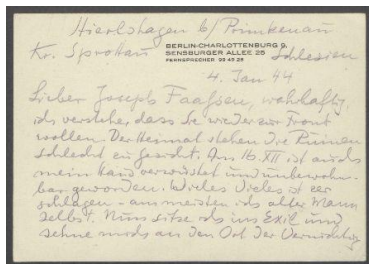 Hierlshagen b/ Primkenau
Kr. Sprottau
BERLIN-CHARLOTTENBURG 9,
SENSBURGER ALLEE 25
FERNSPRECHER 99 45 25
Schlesien
4. Jan 44
Lieber Joseph Faaßen, wahrhaftig
ich verstehe, dass Sie wieder zur Front
wollen. Der Heimat stehen die Ruinen
schlecht zu Gesicht. Am 16. XII ist auch
mein Haus verwüstet und unbewohn-
bar geworden. Vieles Vieles ist zer
schlagen - am meisten ich alter Mann
selbst. Nun sitze ich im Exil und
sehne mich an den Ort der Vernichtung